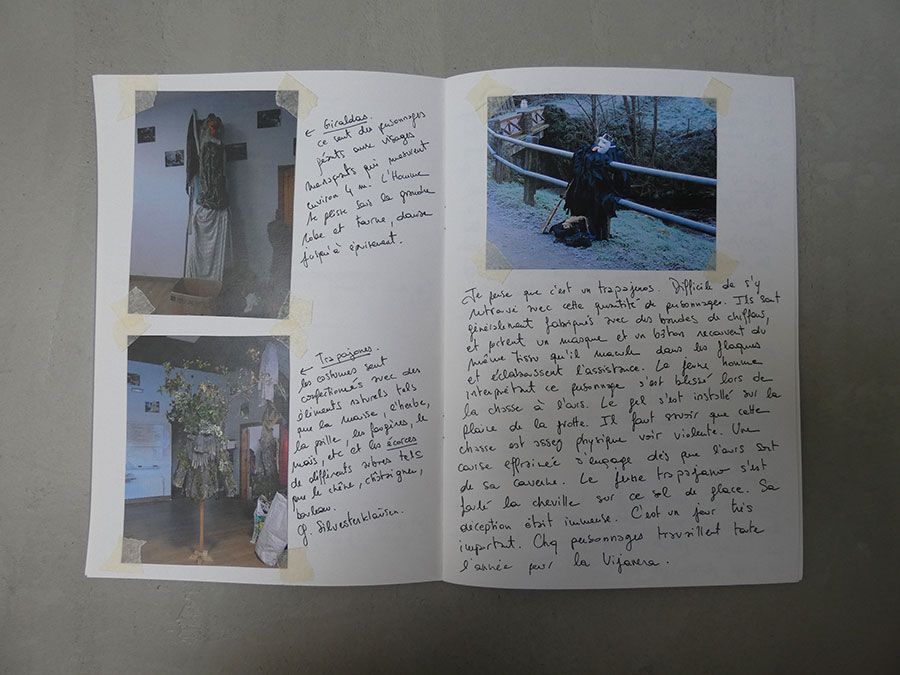 ← Giraldas.
ce sont des personnages
géants aux visages
menaçants qui mesurent
environ 4 m. L'Homme
se glisse sous la grande
robe et tourne, danse
jusqu'à épuisement.
← Trapajones.
les costumes sont
confectionnés avec des
éléments naturels tels
que la mousse, l'herbe,
la paille, les fougères, le
maïs, etc et les écorces
de différents arbres tels
que le chêne, châtaignier,
bouleau.
Silvesterkläusen.
Je pense que c'est un trapajeros. Difficile de s'y
retrouver avec cette quantité de personnages. Ils sont
généralement fabriqués avec des bandes de chiffons,
et portent un masque et un bâton recouvert du
même tissu qu'il macule dans les flaques
et éclaboussent l'assistance. Le jeune homme
interprétant ce personnage s'est blessé lors de
la chasse à l'ours. Le gel s'est installé sur la
plaine de la grotte. Il faut savoir que cette
chasse est assez physique voir violente. Une
course effrénée s'engage dès que l'ours sort
de sa caverne. Le jeune trapajero s'est
foulé la cheville sur ce sol de glace. Sa
déception était immense. C'est un jour très
important. Chq personnages travaillent toute
l'année pour la Vijanera.